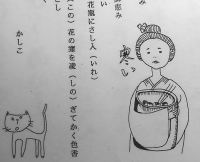 恵み
花瓶にさし入（いれ）
（この）花の寒を凌（しの）ぎてかく色香
し
かしこ
寒し